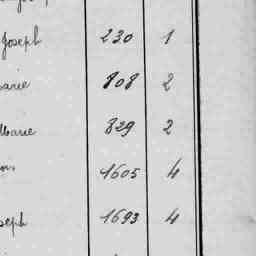 Joseph 230 1
arie 808 2
Marie 829 2
1605 4
seph 1693 4